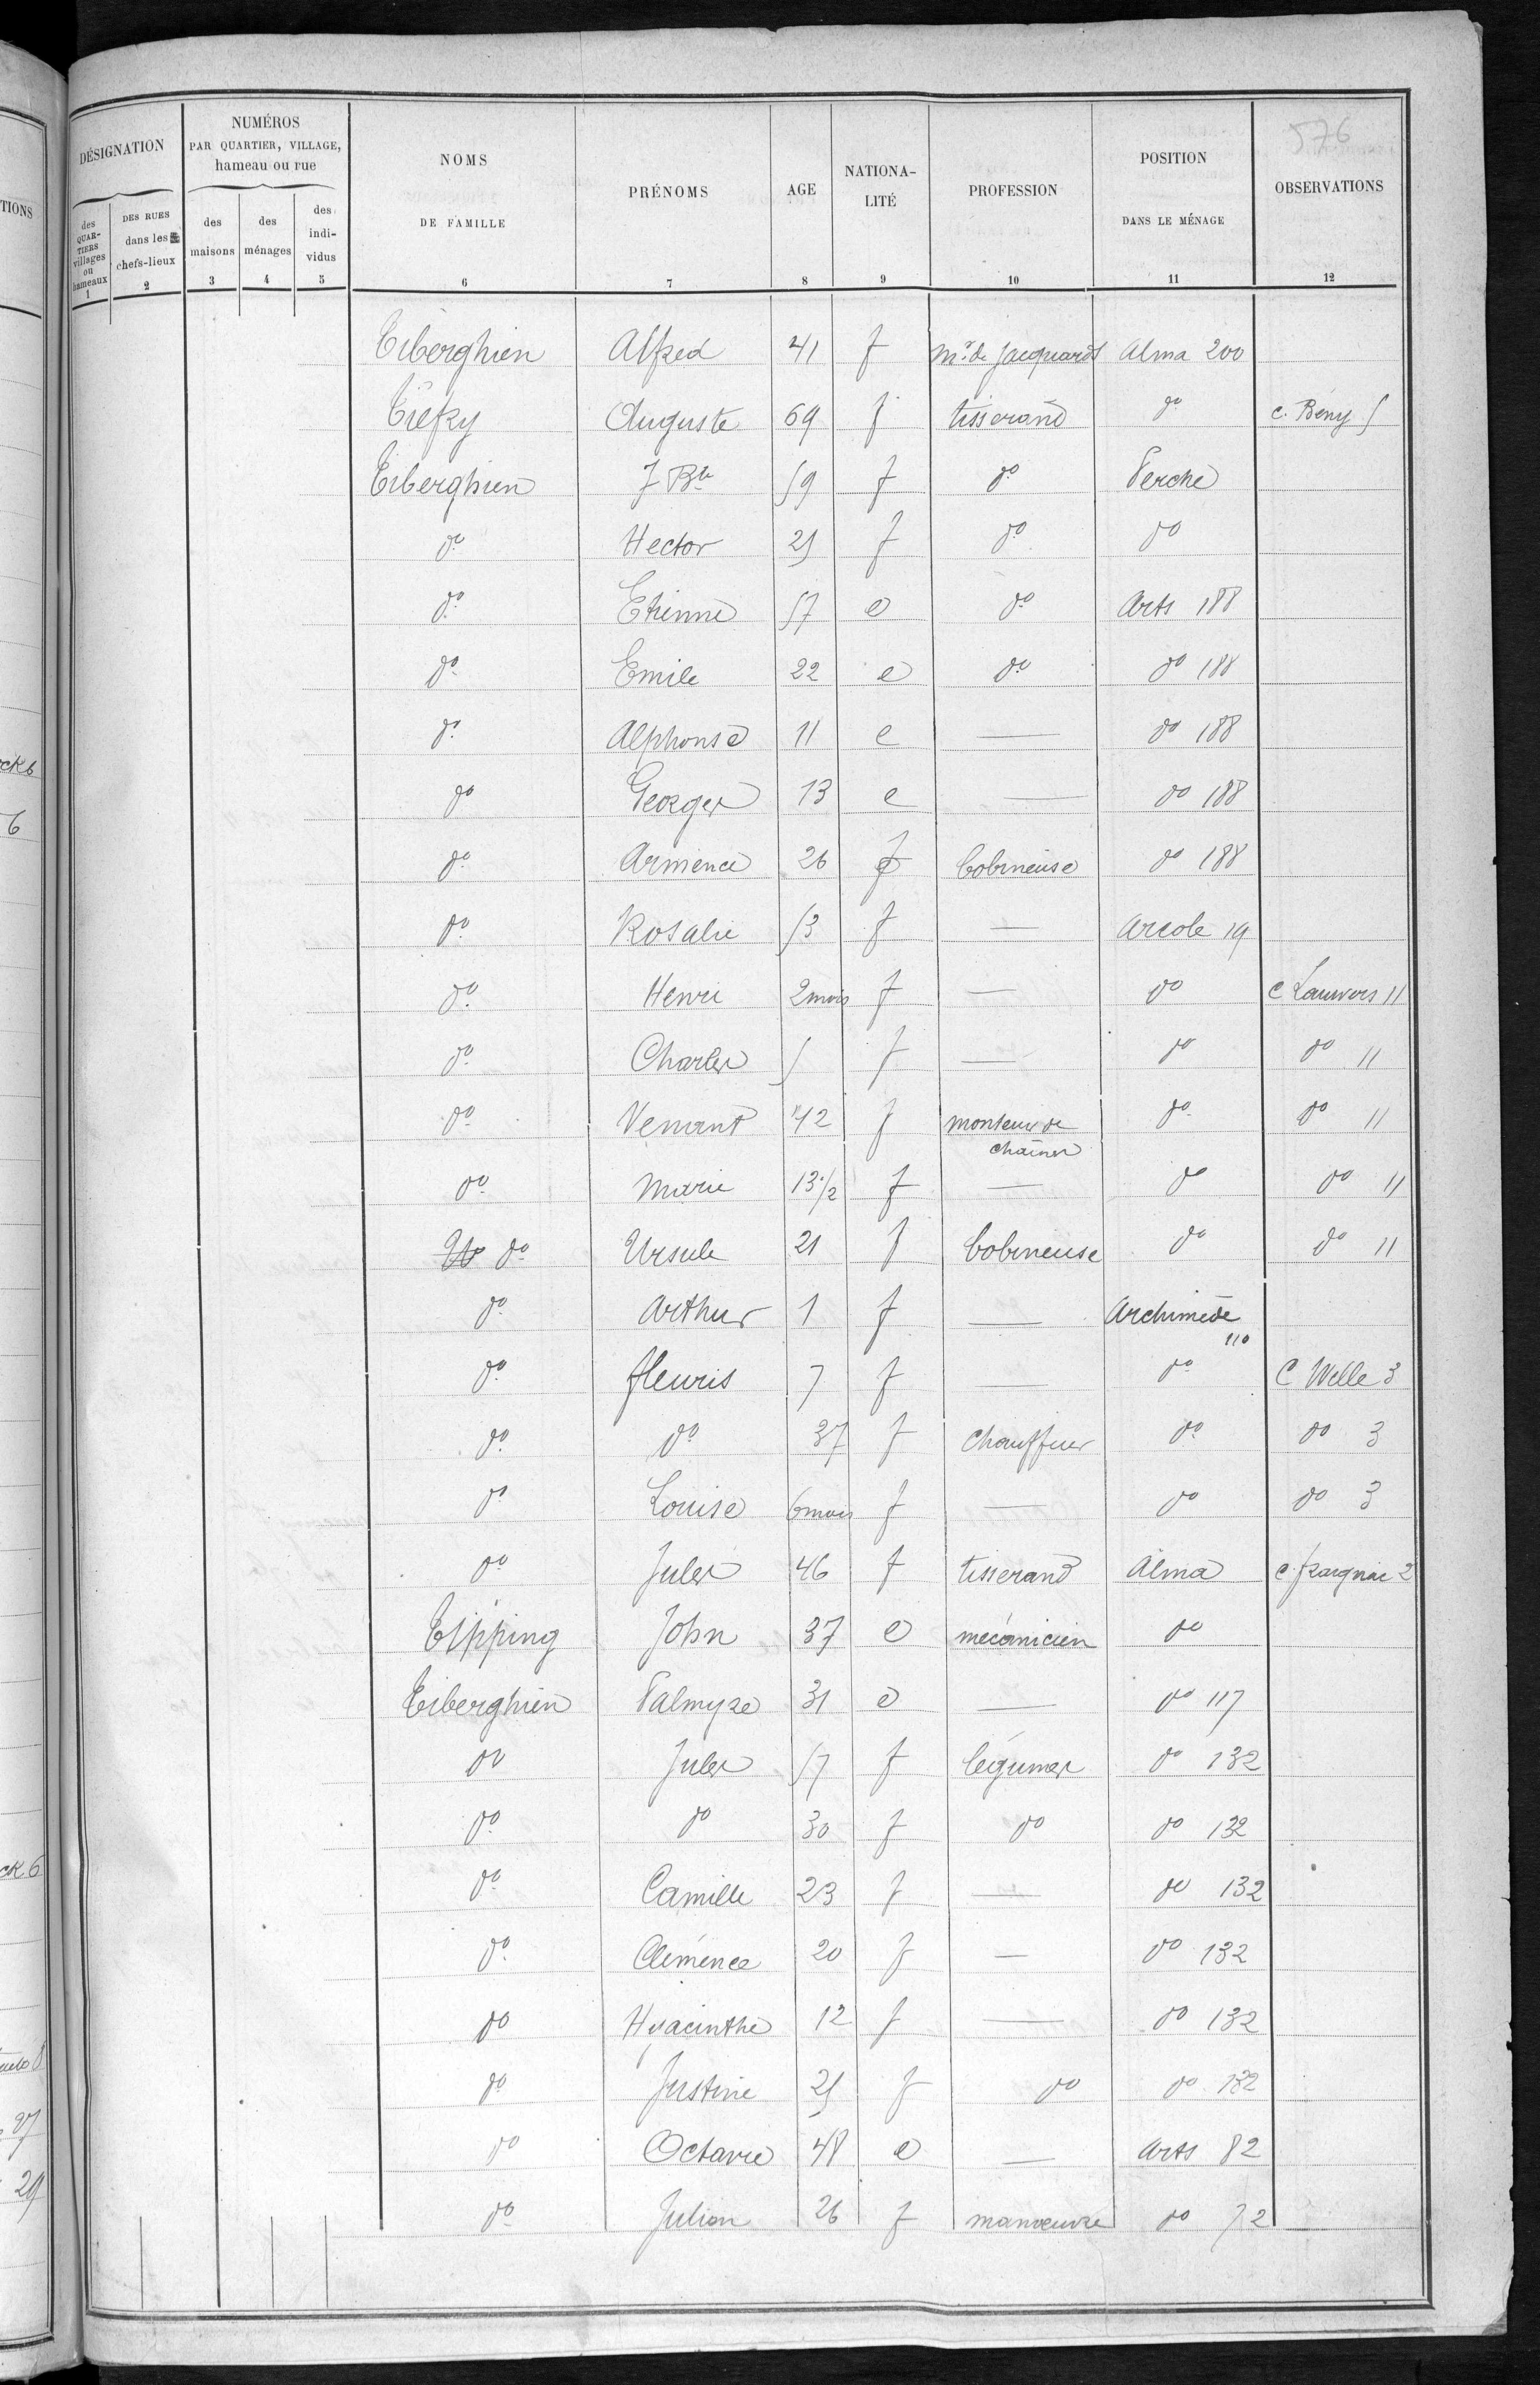 576
DÉSIGNATION
NUMÉROS
PAR QUARTIER, VILLAGE,
hameau ou rue
NOMS
DE FAMILLE
PRÉNOMS
AGE
NATIONA-
LITÉ
PROFESSION
POSITION
DANS LE MÉNAGE
OBSERVATIONS
des
QUAR-
TIERS
villages
ou
hameaux
DES RUES
dans les
chefs-lieux
des
maisons
des
ménages
des
indi-
vidus
1 2 3 4 5 6 7 8 9 10 11 12
Tiberghien Alfred 41 f Mr de Jacquards Alma 200
Auguste 69 f tisserand do c. Bény 5
Tiberghien J Bte 59 f do Perche
do Hector 25 f do do
do Etienne 57 e do Arts 188
do Emile 22 e do do 188
do Alphonse 11 e — do 188
do Georges 13 e — do 188
do Armence 26 f bobineuse do 188
do Rosalie 53 f — Arcole 19
do Henri 2 mois f — do c Lauwers 11
do Charles 5 f — do do 11
do Venant 42 f monteur de do do 11
chaînes
do Marie 13 1/2 f — do do 11
do Ursule 21 f bobineuse do do 11
do Arthur 1 f — Archimède
110
do fleuris 7 f — do C Welle 3
do do 37 f chauffeur do do 3
do Louise 6 mois f — do do 3
do Jules 46 f tisserand Alma
Tipping John 37 e mécanicien do
Tiberghien Palmyre 31 e — do 117
do Jules 57 f légumes do 132
do do 30 f do do 132
do Camille 23 f — do 132
do Clémence 20 f — do 132
do Hyacinthe 12 f — do 132
do Justine 25 f do do 132
do Octavie 48 e — Arts 82
do Julien 26 f manœuvre do 72